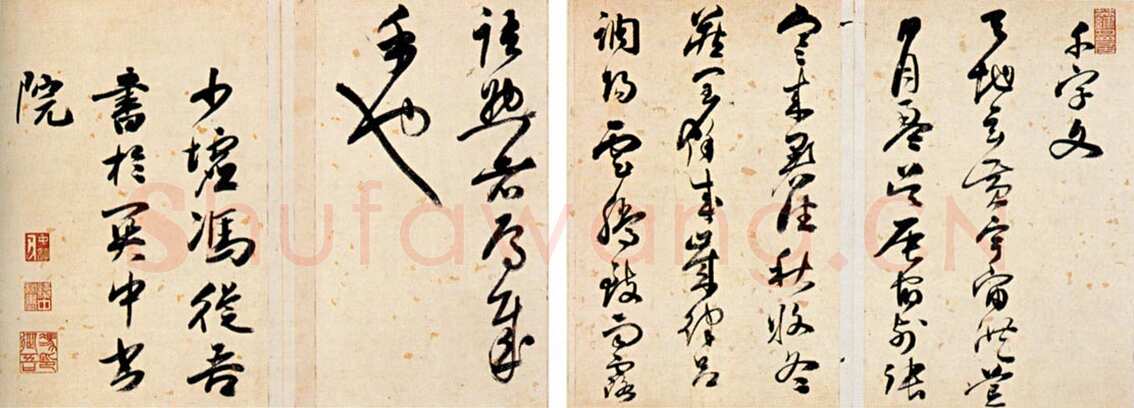 千字文
天地玄黃宇宙洪荒
日月盈昃辰宿列張
寒來暑往秋收冬
藏閏餘成歲律呂
調陽雲騰致雨露
語助者焉哉
乎也
少墟馮從吾
書於關中書
院
Shufawang.CN